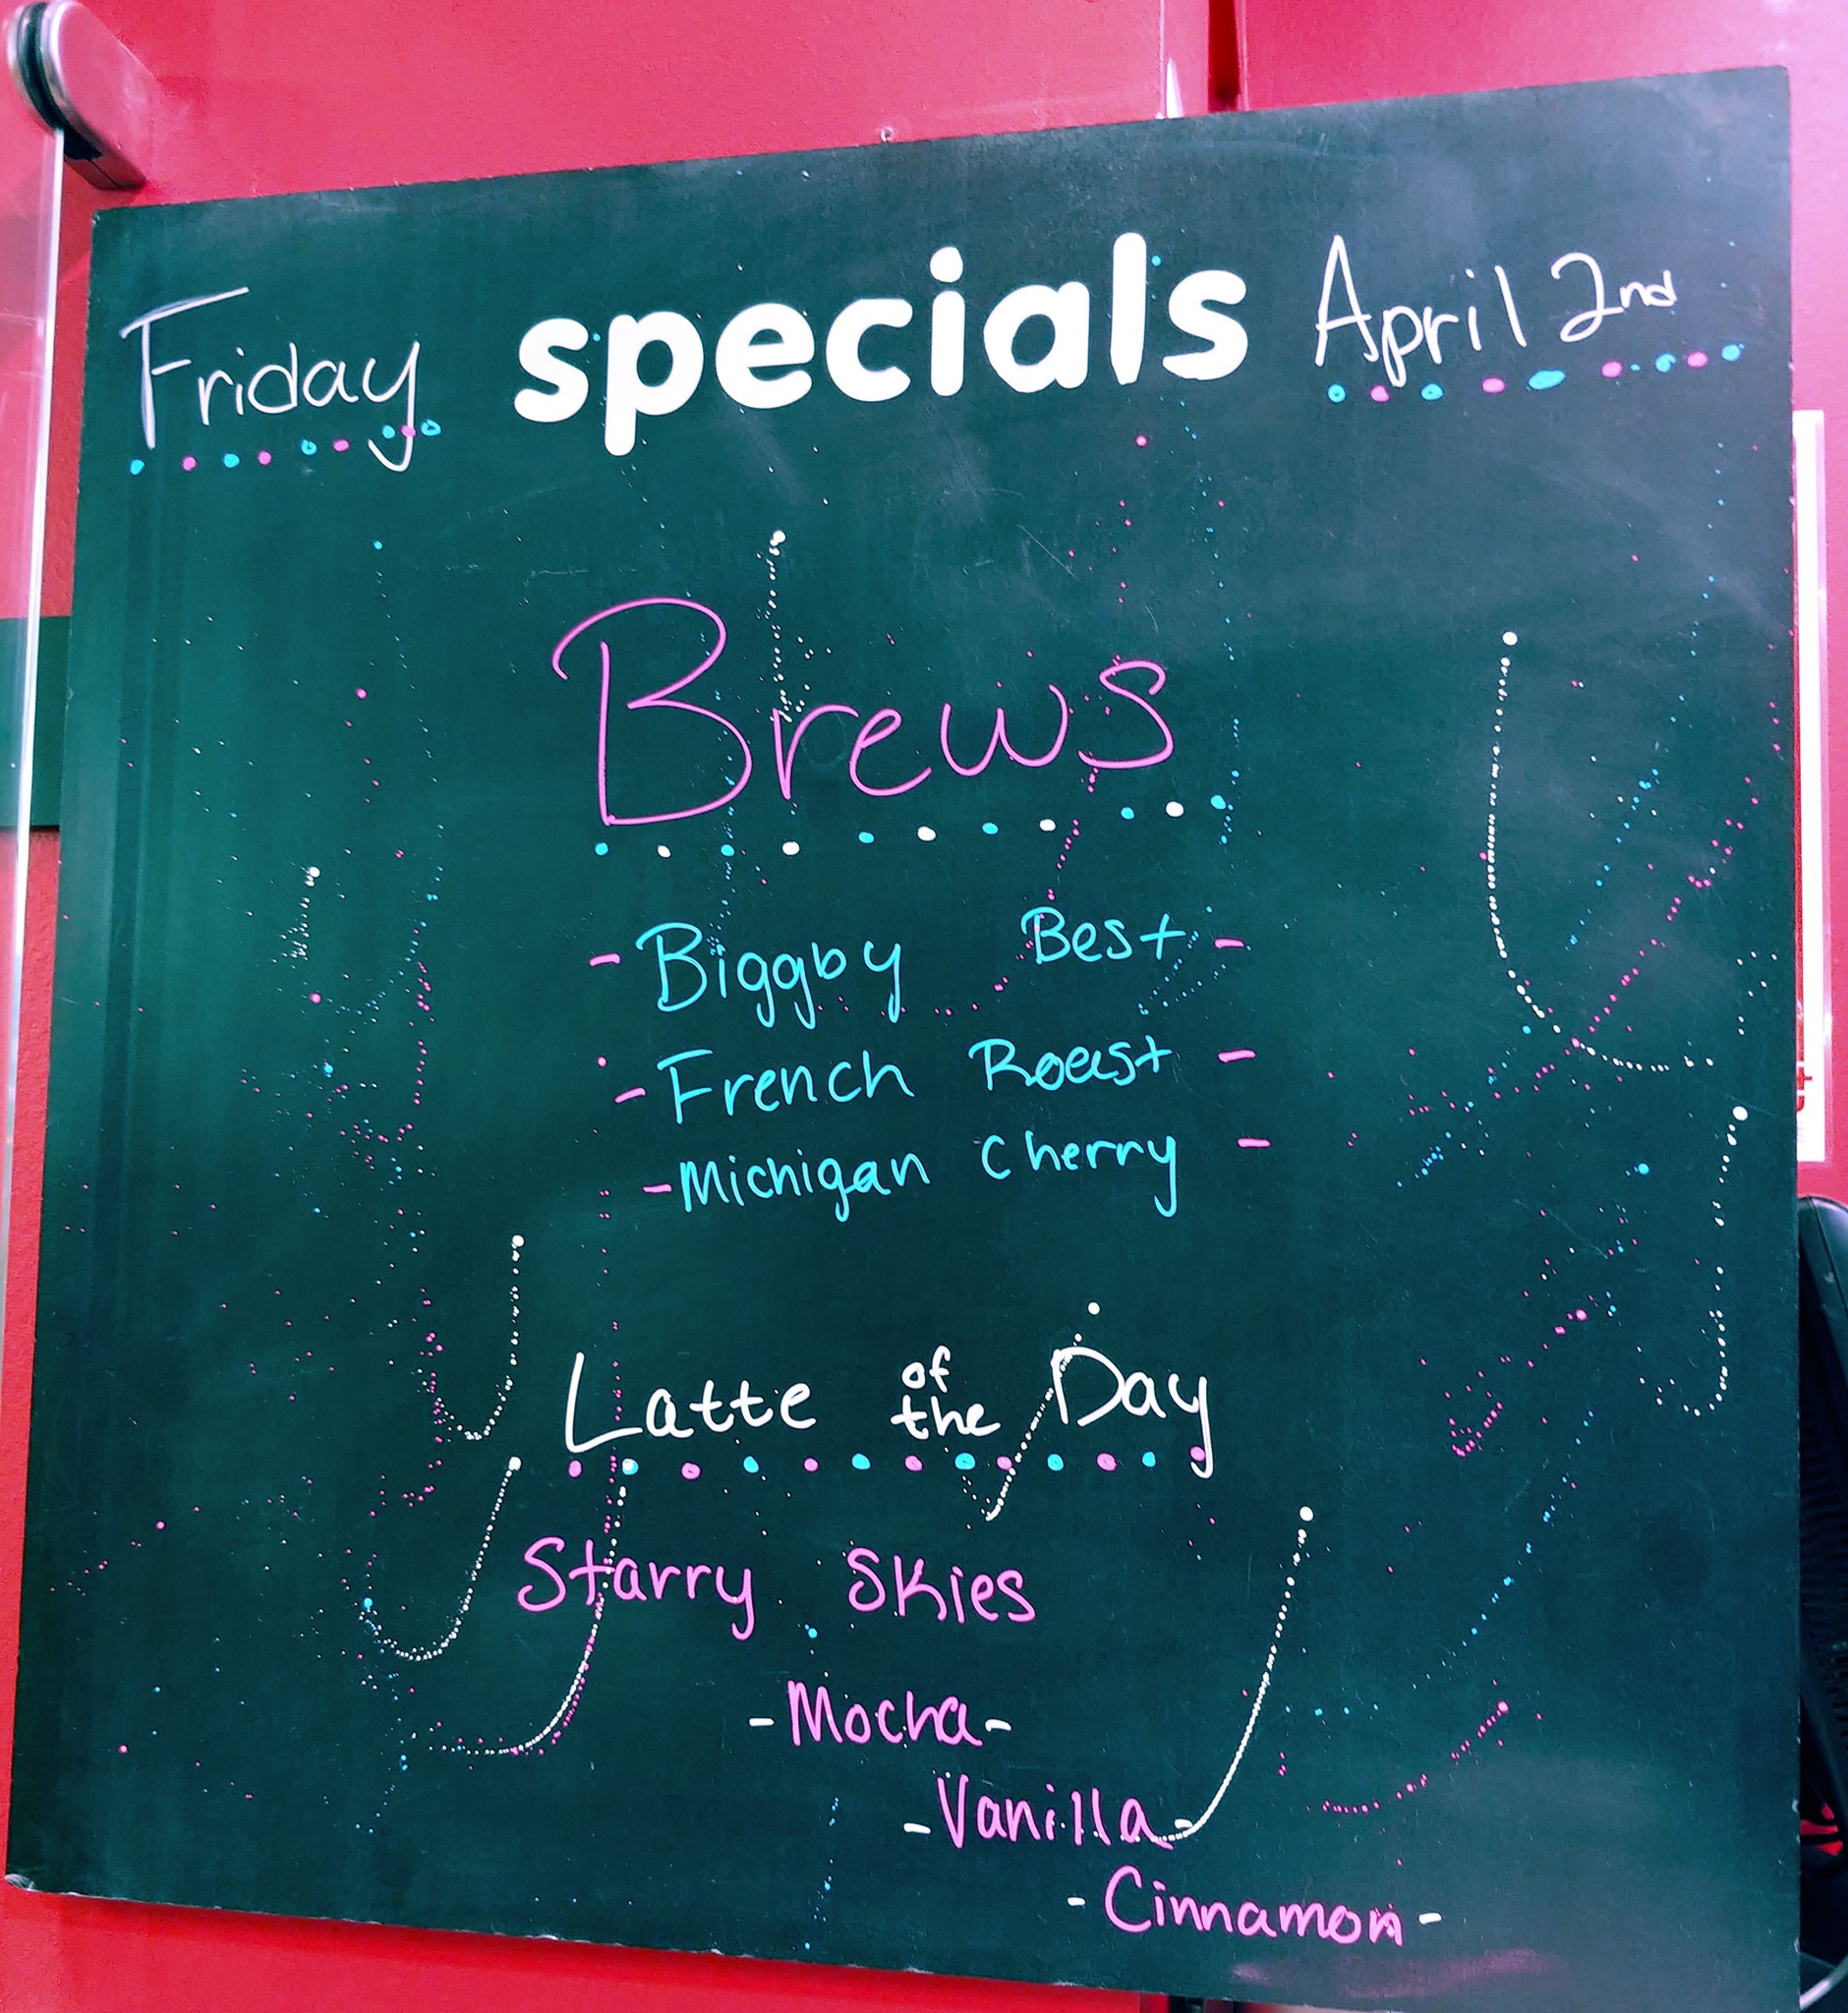 Friday specials April 2nd
Brews
- Biggby Best -
- French Roast -
- Michigan Cherry -
Latte of the Day
Starry Skies
- Mocha -
- Vanilla -
- Cinnamon -